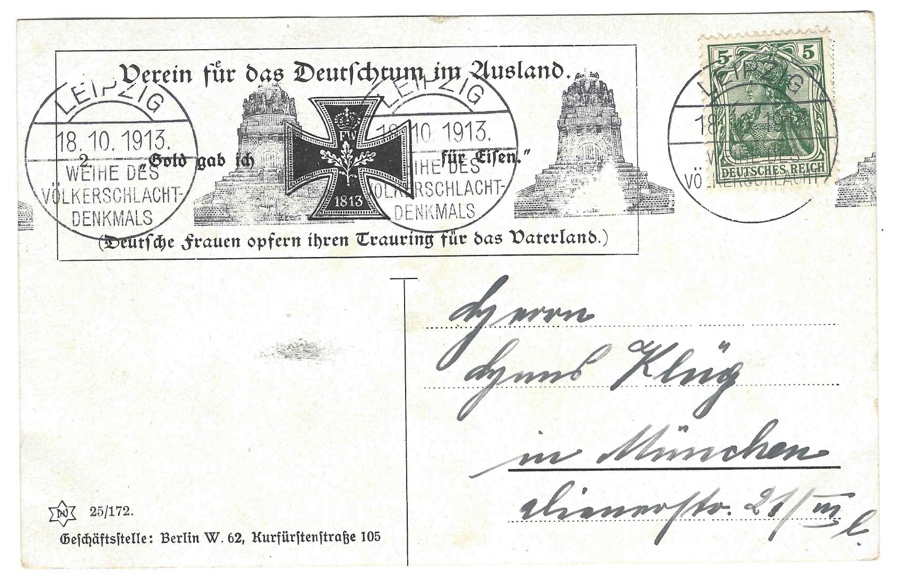 Verein für das Deutschtum im Ausland.
LEIPZIG
18.10.1913.
WEIHE DES
VÖLKERSCHLACHT-
DENKMALS
2. „Gold gab ich
FW
1813
für Eisen.“
LEIPZIG
18.10.1913.
WEIHE DES
VÖLKERSCHLACHT-
DENKMALS
(Deutsche Frauen opfern ihren Trauring für das Vaterland.)
LEIPZIG
VÖLKERSCHLACHT
5 5
DEUTSCHES REICH
Herrn
Hans Klüg
in München
Dienerstr. 21/III l.
25/172.
Geschäftsstelle: Berlin W. 62, Kurfürstenstraße 105